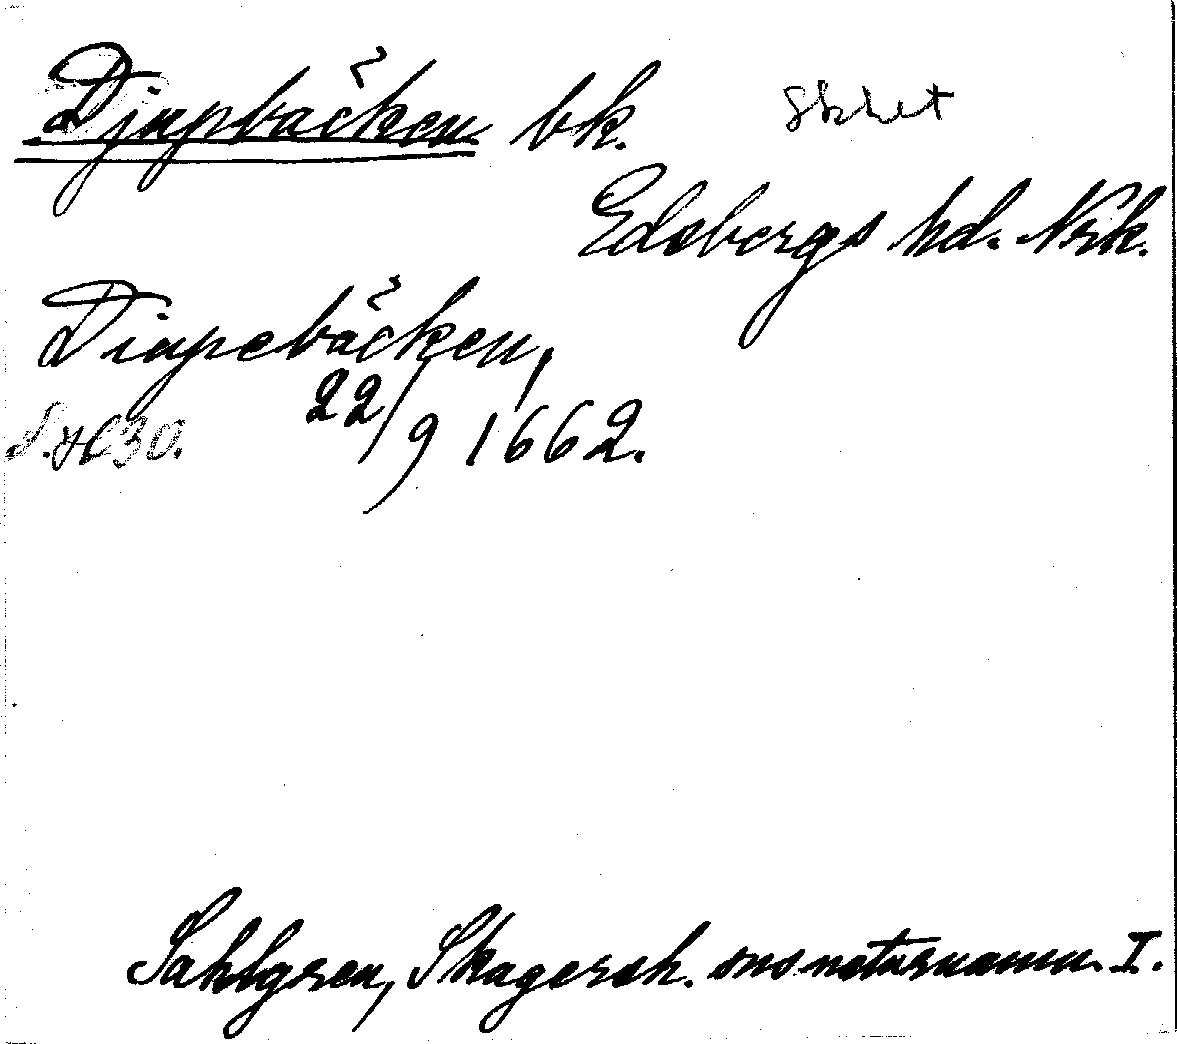 Djupbäcken bk. Skhet
Edsbergs hd. Nrk.
Diupebäcken,
22/9 1662.
Sahlgren, Skagersh. sns naturnamn. I.